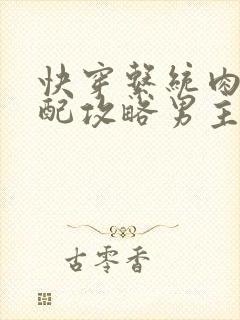 快穿系统肉
配攻略男主
古零香